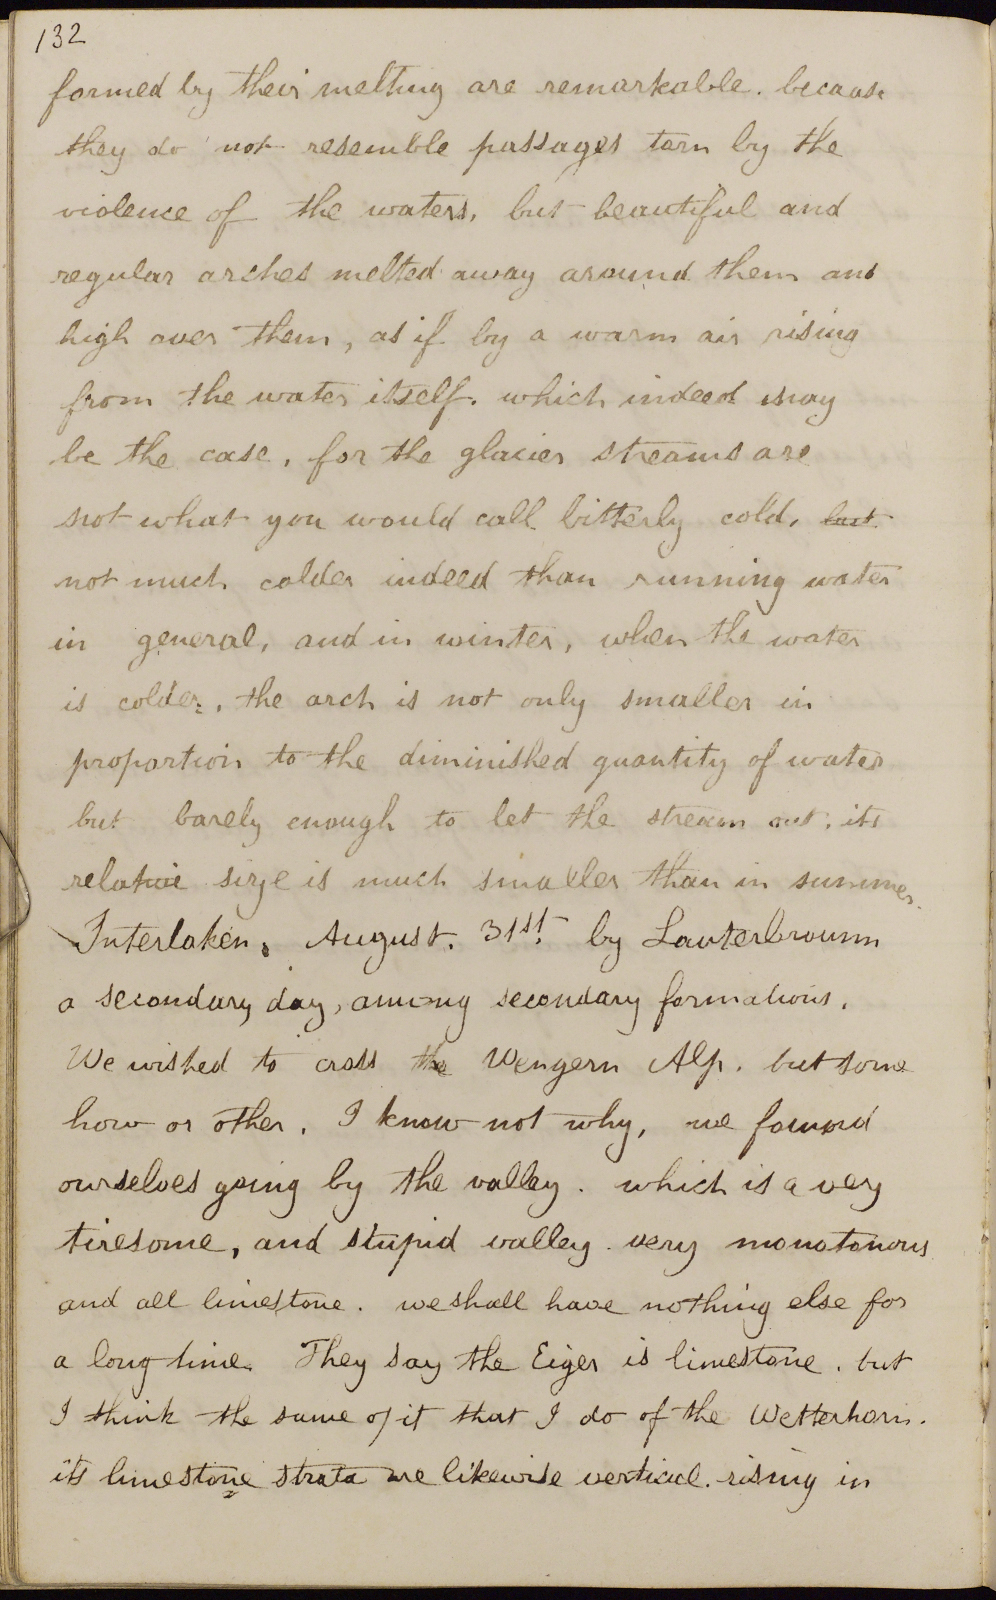 132
formed by their melting are remarkable. because
they do not resemble passages torn by the
violence of the waters, but beautiful and
regular arches melted away around them and
high over them, as if by a warm air rising
from the water itself. which indeed may
be the case, for the glacier streams are
not what you would call bitterly cold, but
not much colder indeed than running water
in general, and in winter, when the water
is colder, the arch is not only smaller in
proportion to the diminished quantity of water
but barely enough to let the stream out. its
relative size is much smaller than in summer.
Interlaken. August. 31st. by Lauterbrounn
a secondary day, among secondary formations.
We wished to cross the Wengern Alp. but some
how or other, I know not why, we found
ourselves going by the valley. which is a very
tiresome, and stupid valley. very monotonous
and all limestone. we shall have nothing else for
a long time. They say the Eiger is limestone. but
I think the same of it that I do of the Wetterhorn.
its limestone strata are likewise vertical. rising in